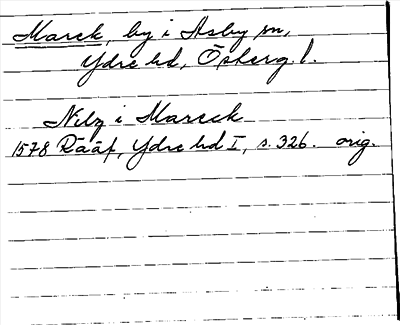 Marek, by i Asby sn,
Ydre hd, Österg. l.
Nilz i Mareck
1578 Rääf, Ydre hd I, s. 326. orig.